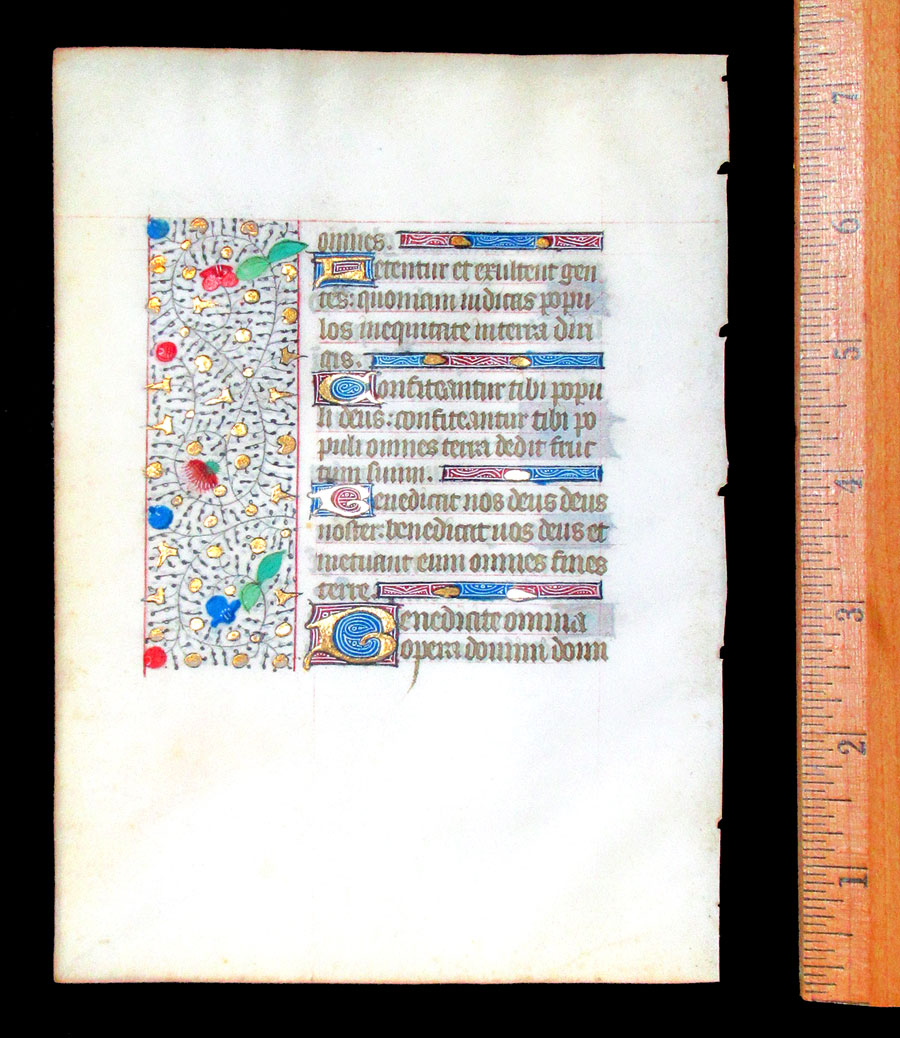 omnes.
Letentur et exultent gen
tes: quoniam iudicas popu
los in equitate in terra diri
gis.
Confiteantur tibi popu
li deus: confiteantur tibi po
puli omnes terra dedit fruc
tum suum.
Benedicat nos deus deus
noster. benedicat nos deus et
metuant eum omnes fines
terre.
Benedicite omnia
opera domini domi
7
6
5
4
3
2
1